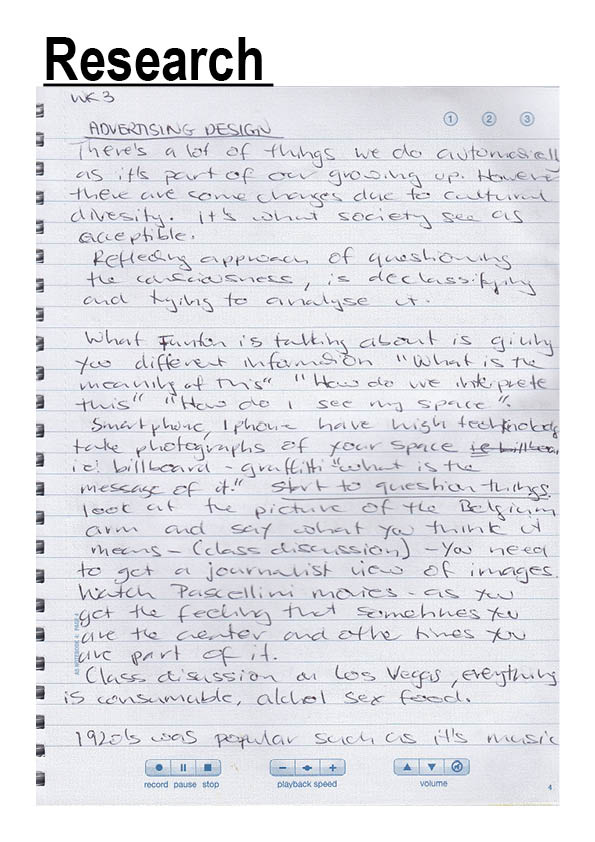 Research
WK 3
1 2 3
ADVERTISING DESIGN
There's a lot of things we do automatically
as it's part of our growing up. However
there are some changes due to cultural
diversity. It's what society see as
acceptible.
Reflecting approach of questioning
the consciousness, is declassifying
and trying to analyse it.
What is talking about is giving
you different information "What is the
meaning of this" "How do we interprete
this" "How do I see my space".
Smartphone, Iphone have high technology
take photographs of your space ie billboar
ie: billboard - graffitti "what is the
message of it." Start to question things.
look at the picture of the Belgium
arm and say what you think it
means - (class discussion) - You need
to get a journalist view of images.
Watch Pascellini movies - as you
get the feeling that sometimes you
are the and othe times you
are part of it.
Class discussion on Los Vegas, everything
is consumable, alchol sex food.
1920s was popular such as it's music
record pause stop
playback speed
volume
A5 NOTEBOOK 4: PAGE
4